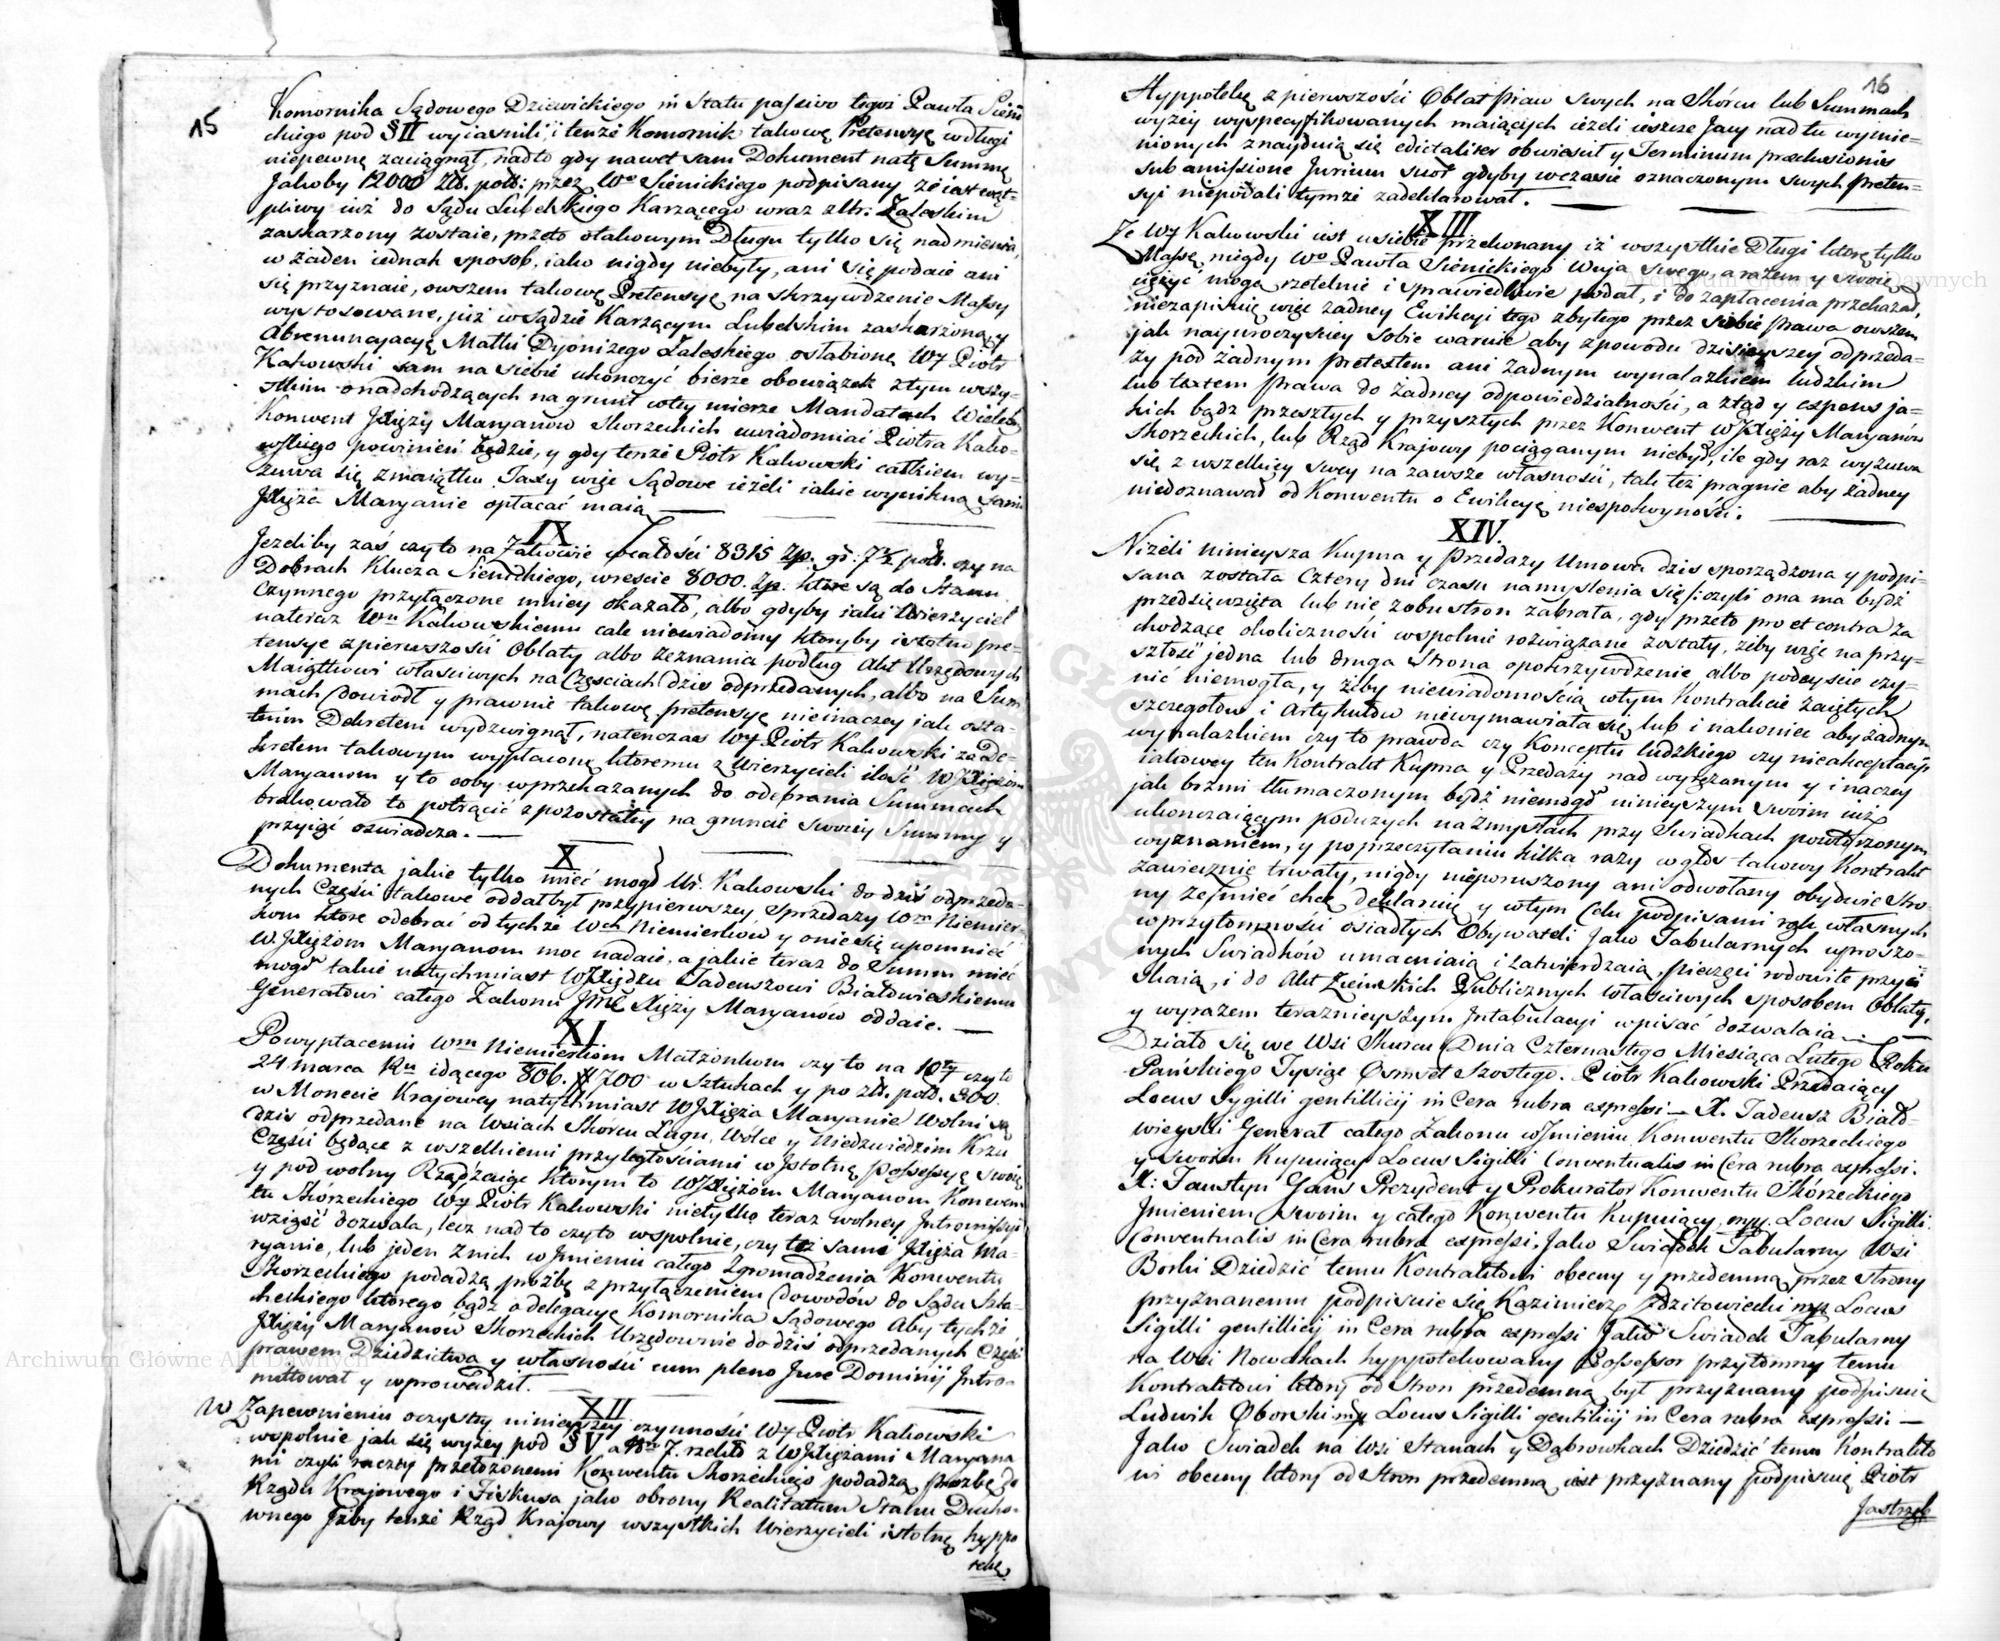 15
Komornika Sądowego Dziewickiego in Statu passivo tegoż Pawła Sieni
ckiego pod § II wyiasnili, i tenże Komornik takowę Pretensyę w długi
niepewne zaciągnął, nadto gdy nawet sam Dokument natę Summę
Jakoby 12000 Zł. pol: przez Wo Sienickiego podpisany że iest wąt-
pliwy iuż do Sądu Lubelskiego Karzącego wraz z Zaleskim
zaskarzony zostaie, przeto otakowym Długu tylko się nadmienia,
w żaden iednak sposob, iako nigdy niebyły, ani się podaie ani
się przyznaie, owszem takowę Pretensyę na skrzywdzenie Massy
wystosowane, już w Sądzie Karzącym Lubelskim zaskarzoną y
Abrenuncyacyę Matki Dyonizego Zaleskiego osłabione WJ Piotr
Kakowski sam na siebie ukończyć bierze obowiązek z tym wszy-
stkim o nadchodzących na grunt w tey mierze Mandatach Wieleb:
Konwent Xięży Maryanow Skorzeckich uwiadomiać Piotra Kako-
wskiego powinien będzie, y gdy tenże Piotr Kakowski całkiem wy-
zuwa się z maiątku, Taxy więc Sądowe ieżeli iakie wynikną sami
Xięża Maryanie opłacać maią
IX
Jezeliby zaś czy to na Zakowie w całości 8315 Zp. gr: 7½ pol. czy na
Dobrach Klucza Sienickiego, w reście 8000. Zp. ktore są do Stanu
Czynnego przyłączone mniey okazało, albo gdyby iaki Wierzyciel
nateraz Wmu Kakowskiemu cale niewiadomy ktoryby istotne pre-
tensye z pierwszości Oblaty albo Zeznania podług Akt Urzędowych
Maiątkowi właściwych na Częściach dzis odprzedanych, albo na Sum
mach dowiodł y prawnie takowę pretensyę nieinaczey iak osta-
tnim Dekretem wydzwignął, natenczas WJ Piotr Kakowski za De-
kretem takowym wypłaconę ktoremu z Wierzycieli ilość WJXiężom
Maryanom y to coby w przekazanych do odebrania Summach
brakowało to potrącić z pozostałey na gruncie swoiey Summy y
przyiąć oswiadcza.
X
Dokumenta jakie tylko mieć mogł Ur. Kakowski do dziś odprzeda-
nych Części takowe oddał był przy pierwszey sprzedaży Wm Niemier-
kom ktore odebrać od tychże Wch Niemierkow y onie się upomnieć
W. Xiężom Maryanom moc nadaie, a jakie teraz do Summ mieć
mogł takie natychmiast WJXiędzu Tadeuszowi Białowieskiemu
Generałowi całego Zakonu JmC Xięży Maryanów oddaie.
XI
Po wypłaceniu Wm Niemierkom Małżonkom czy to na 10tą czy to
24 marca Ru idącego 806. # 700 w Sztukach y po zł. pol. 300.
w Monecie Krajowey natychmiast WJXięża Maryanie Wolni są
dzis odprzedane na Wsiach Skorcu Ługu, Wolce y Niedzwiedzim Krzu
Części będące z wszelkiemi przyległościami w Istotną Possessyę swoię
y pod wolny Rząd zaiąc Ktorym to WJXiężom Maryanom Konwen
tu Skórzeckiego WJ Piotr Kakowski nietylko teraz wolney Intromissyi
wziąść dozwala, lecz nad to czy to wspolnie, czy też sami Xięża Ma-
ryanie, lub jeden z nich w Imieniu całego Zgromadzenia Konwentu
Skorzeckiego podadzą prożbę z przyłączeniem dowodów do Sądu Szla-
checkiego ktorego bądz o delegacyę Komornika Sądowego Aby tychże
Xięży Maryanow Skorzeckich Urzędownie do dziś odprzedanych Części
prawem Dziedzictwa y własności cum pleno Jure Dominij Intro-
mittował y wprowadził.
XII
W Zapewnieniu oczystey ninieyszey czynności WJ Piotr Kakowski
wspolnie jak się wyżey pod § V a No 7. rzekło z WJXiężami Maryana
mi czyli raczey przełożonemi Konwentu Skorzeckiego podadzą prozbę do
Rządu Krajowego i Fiskusa jako obrony Realitatum Stanu Ducho-
wnego Iżby tenże Rząd Krajowy wszystkich Wierzycieli istotnę hyppo
tekę
16
Hyppotekę z pierwszości Oblat praw swych na Skórcu lub Summach
wyzey wyspecyfikowanych maiących ieżeli ieszcze Jacy nad tu wymie-
nionych znayduią się edictaliter obwiescił y Terminum praeclusionis
sub amissione Jurium swoł gdyby wczasie oznaczonym swych preten-
syi niepodali tymże zadeklarował.
XIII
Ze WJ Kakowski iest u siebie przekonany iż wszystkie Długi ktorę tylko
Massę niegdy Wo Pawła Sienickiego Wuja swego, a razem y swoię
ciężyć mogą rzetelnie i sprawiedliwie podał, i do zapłacenia przekazał,
niezapisuie więc żadney Ewikcyi tego zbytego przez siebie prawa owszem
jak nayuroczyściey sobie waruie aby z powodu dzisieyszey odprzeda-
ży pod żadnym pretextem ani żadnym wynalazkiem ludzkim
lub textem prawa do żadney odpowiedzialności, a ztąd y expens ja-
kich bądz przeszłych y przyszłych przez Konwent WJXięży Maryanów
Skorzeckich, lub Rząd Krajowy pociąganym niebył, ile gdy raz wyzuwa
się z wszelkiey swey na zawsze własności, tak też pragnie aby żadney
niedoznawał od Konwentu o Ewikcyę niespokoyności.
XIV.
Niżeli ninieysza Kupna y Przedaży Umowa dzis sporządzona y podpi-
sana została Cztery dni czasu namyslenia się /: czyli ona ma bydź
przedsięwzięta lub nie z obu stron zabrała, gdy przeto pro et contra za
chodzące okoliczności wspolnie rozwiązane zostały, żeby więc na przy-
szłość jedna lub druga Strona o pokrzywdzenie, albo podeyscie czy-
nić niemogła, y żeby niewiadomością w tym Kontrakcie zaiętych
szczegołów i Artykułów niewymawiała się, lub i nakoniec aby żadnym
wynalazkiem czy to prawda czy Konceptu ludzkiego czy nieakceptacyi
iakowey ten Kontrakt Kupna y Przedaży nad wyrężanym y inaczey
jak brzmi tłumaczonym bydź niemogł ninieyszym swoim iuż
ukonczaiącym poduczych na Zmysłach przy Swiadkach powtórzonym
wyznaniem, y po przeczytaniu kilka razy w głos takowy Kontrakt
zawiecznie trwały, nigdy nieporuszony ani odwołany obydwie Stro-
ny że mieć chcą deklaruią y wtym Celu podpisami rąk własnych
w przytomności osiadłych Obywateli Jako Tabularnych uproszo-
nych Swiadków umacniaią i zatwierdzaią, pieczęci rodowite przyci
skaią, i do Akt Ziemskich Publicznych właściwych sposobem Oblaty,
y wyrazem teraznieyszym Intabulacyi wpisać dozwalaią
Działo się we Wsi Skurcu Dnia Czternastego Miesiąca Lutego Roku
Pańskiego Tysiąc Osmset Szostego. Piotr Kakowski Przedaiący
Locus Sygilli gentillicij in Cera rubra expressi — X. Tadeusz Biało-
wieyski Generał całego Zakonu w Imieniu Konwentu Skorzeckiego
y swoim Kupuiący Locus Sigilli Conventualis in Cera rubra expressi.
X: Faustyn Gans Prezydent y Prokurator Konwentu Skórzeckiego
Imieniem swoim y całego Konwentu Kupuiący mp. Locus Sigilli
Conventualis in Cera rubra expressi. Jako Swiadek Tabularny Wsi
Borki Dziedzic temu Kontraktowi obecny y przedemną przez Strony
przyznanemu podpisuie się Kazimierz Zdzitowiecki mp. Locus
Sigilli gentillicij in Cera rubra expressi Jako Swiadek Tabularny
na Wsi Nowakach hyppotekowany Possessor przytomny temu
Kontraktowi ktory od Stron przedemną był przyznany podpisuie
Ludwik Oborski mp. Locus Sigilli gentilicij in Cera rubra expressi —
Jako Swiadek na Wsi Stanach y Dąbrowkach Dziedzic temu Kontrakto
wi obecny ktory od Stron przedemną iest przyznany podpisuię Piotr
Jastrzęb